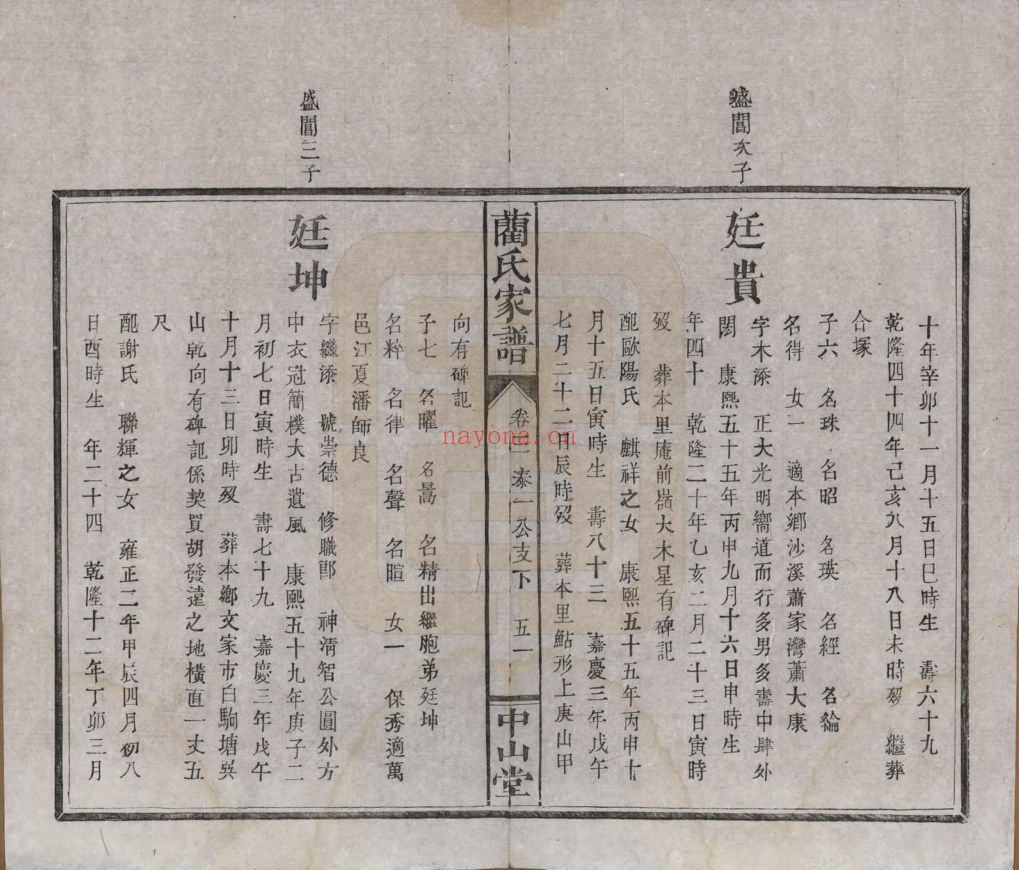 十年辛卯十一月十五日巳時生　壽六十九
乾隆四十四年己亥八月十八日未時歿　繼葬
合塚
子六　名珠　名昭　名瑛　名經　名綸
名得　女一　適本鄉沙溪蕭家灣蕭大康
盛閶次子
廷貴
字木添　正大光明嚮道而行多男多壽中肆外
閎　康熙五十五年丙申九月十六日申時生
年四十　乾隆二十年乙亥二月二十三日寅時
歿　葬本里庵前嶺大木星有碑記
配歐陽氏　麒祥之女　康熙五十五年丙申十
月十五日寅時生　壽八十三　嘉慶三年戊午
七月二十二日辰時歿　葬本里鮎形上庚山甲
藺氏家譜
卷二泰一公支下　五一
中山堂
向有碑記
子七　名曜　名暠　名精出繼胞弟廷坤
名粹　名律　名聲　名暄　女一　保秀適萬
邑江夏潘師良
盛閶三子
廷坤
字繼添　號崇德　修職郎　神清智公圓外方
中衣冠簡樸大古遺風　康熙五十九年庚子二
月初七日寅時生　壽七十九　嘉慶三年戊午
十月十三日卯時歿　葬本鄉文家市白駒塘巽
山乾向有碑記係契買胡發達之地橫直一丈五
尺
配謝氏　聯輝之女　雍正二年甲辰四月初八
日酉時生　年二十四　乾隆十二年丁卯三月
nayona.cn